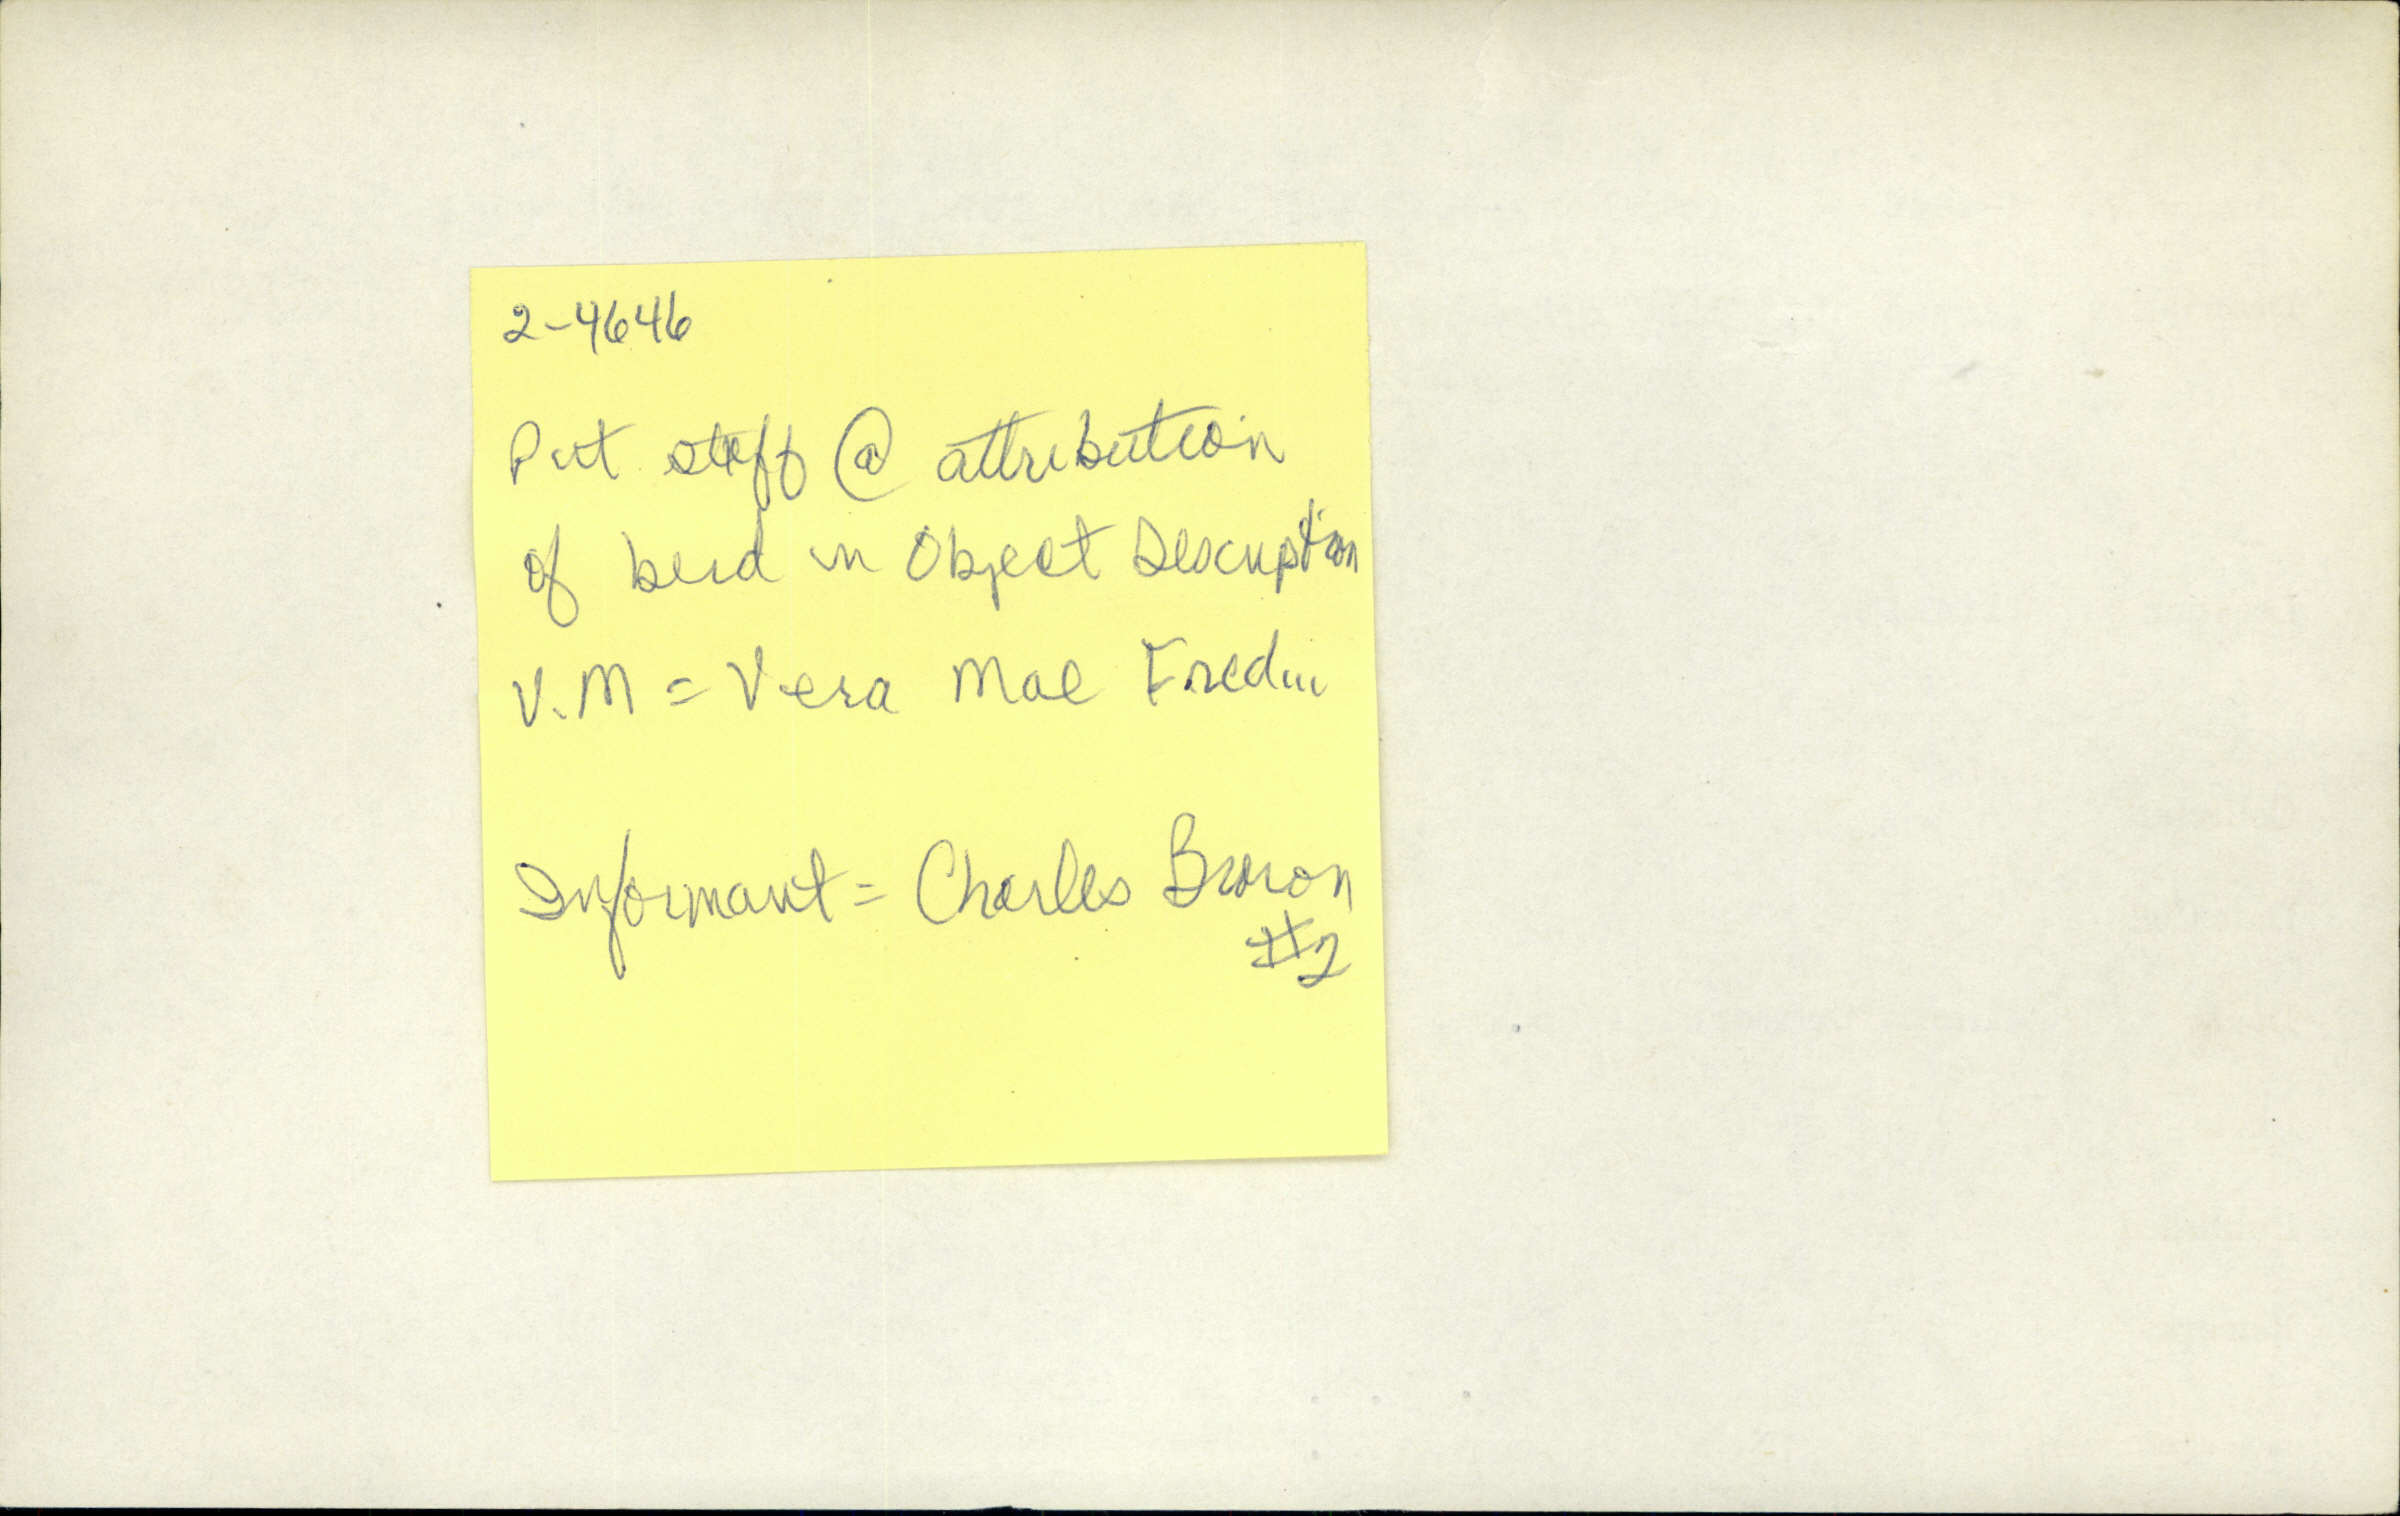 2-4646
Put stuff @ attribution
of bird in Object Description
V.M = Vera Mae Fredin
Informant = Charles Brown
#2